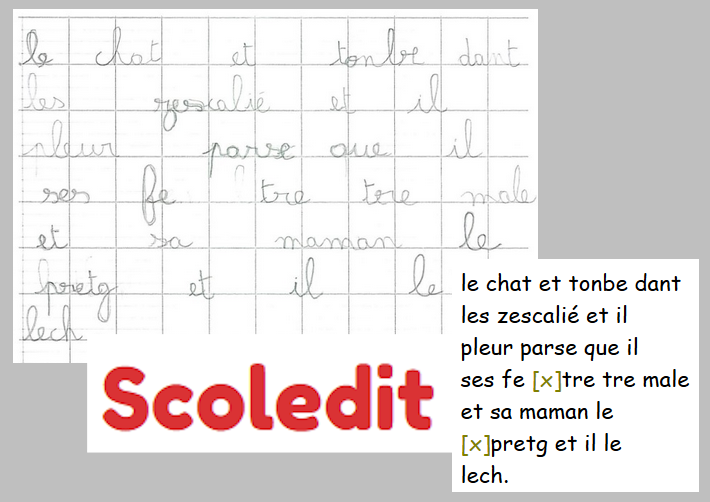 le chat et tonbe dant
les zescalié et il
pleur parse que il
ses fe tre tre male
et sa maman le
pretg et il le
lech
Scoledit
le chat et tonbe dant
les zescalié et il
pleur parse que il
ses fe [x]tre tre male
et sa maman le
[x]pretg et il le
lech.